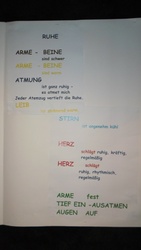 RUHE
ARME - BEINE
sind schwer
ARME - BEINE
sind warm
ATMUNG
ist ganz ruhig -
es atmet mich
Jeder Atemzug vertieft die Ruhe.
LEIB
STIRN
ist angenehm kühl
HERZ
schlägt ruhig, kräftig,
regelmäßig
HERZ
schlägt
ruhig, rhythmisch,
regelmäßig
ARME fest
TIEF EIN -AUSATMEN
AUGEN AUF